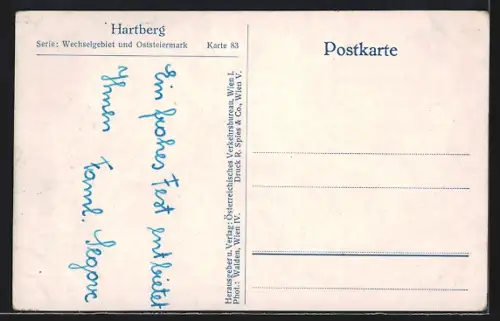 Hartberg
Serie: Wechselgebiet und Oststeiermark Karte 83
Postkarte
Ein frohes Fest entbietet
Ihnen Faml.
Herausgeber u. Verlag: Österreichisches Verkehrsbureau, Wien I.
Phot.: Walden, Wien IV. Druck R. Spies & Co., Wien V.